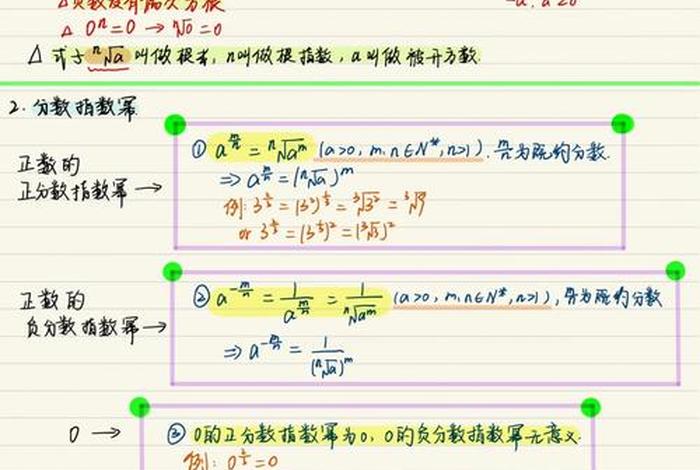 △ 负数没有偶次方根
-a, a≥0
△ 0ⁿ=0 → ⁿ√0=0
△ 式子ⁿ√a叫做根式, n叫做根指数, a叫做被开方数.
2. 分数指数幂
正数的
正分数指数幂 →
① a^(m/n) = ⁿ√a^m (a>0, m, n∈N*, n>1). m/n为既约分数.
⇒ a^(m/n) = (ⁿ√a)^m
例: 3^(2/3) = (3²)^(1/3) = ³√3² = ³√9
or 3^(2/3) = (3^(1/3))² = (³√3)²
正数的
负分数指数幂 →
② a^(-m/n) = 1/a^(m/n) = 1/ⁿ√a^m (a>0, m, n∈N*, n>1), m/n为既约分数
⇒ a^(-m/n) = 1/(ⁿ√a)^m
0 →
③ 0的正分数指数幂为0, 0的负分数指数幂无意义.